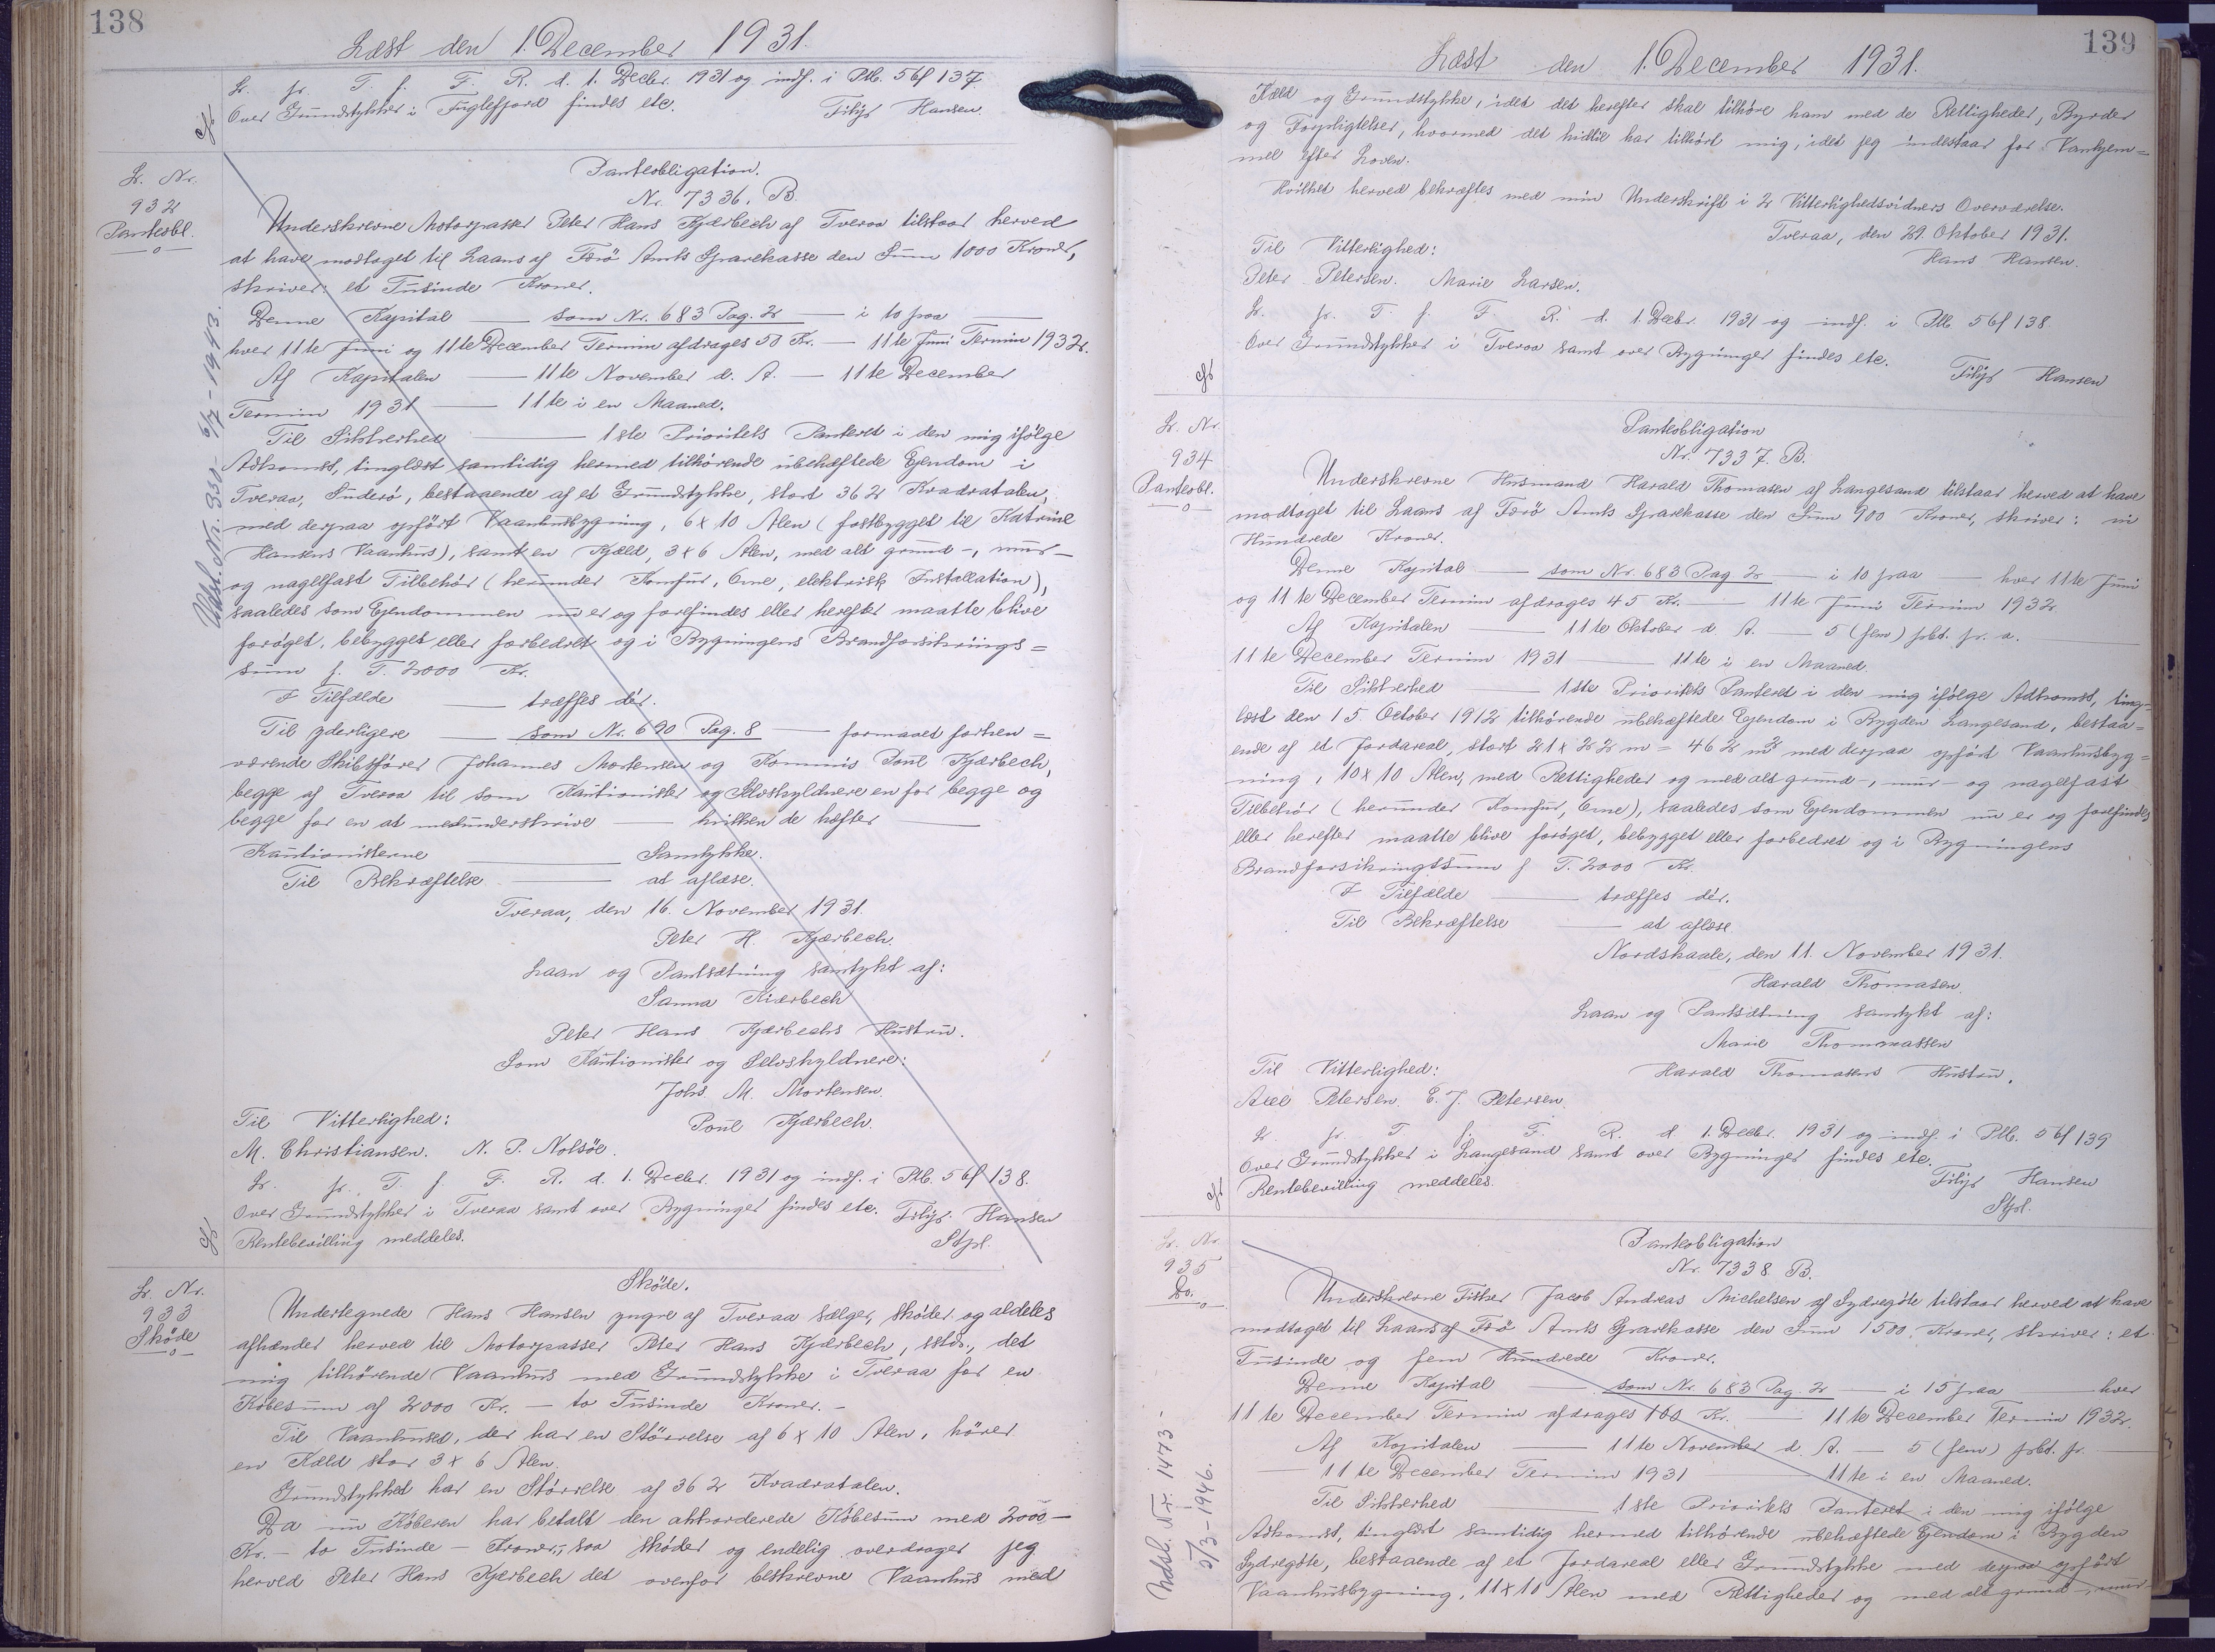 138
Læst den 1. December 1931.
L. fr. T. f. F. R. d. 1. Decbr. 1931 og indf. i Ptb. 56 f 137.
Over Grundstykker i Fuglefjord findes etc. Filijs Hansen.
L. Nr.
932
Panteobl.
Udsl. Nr. 350 - 6/7 - 1943.
Panteobligation.
Nr. 7336. B.
Underskrevne Motorpasser Peter Hans Kjærbech af Tveraa tilstaar herved
at have modtaget til Laans af Færö Amts Sparekasse den Sum 1000 Kroner,
skriver: et Tusinde Kroner.
Denne Kapital — som Nr. 683 Pag. 2 — i 10 paa —
hver 11te Juni og 11te December Termin afdrages 50 Kr. — 11te Juni Termin 1932.
Af Kapitalen — 11te November d. A. — 11te December
Termin 1931 — 11te i en Maaned.
Til Sikkerhed — 1ste Prioritets Panteret i den mig ifölge
Adkomst, tinglæst samtidig hermed tilhörende ubehæftede Ejendom i
Tveraa, Suderö, bestaaende af et Grundstykke, stort 362 Kvadratalen,
med derpaa opfört Vaanhusbygning, 6 x 10 Alen (fastbygget til Katrine
Hansens Vaanhus), samt en Kjæld, 3 x 6 Alen, med alt grund-, mur-
og nagelfast Tilbehör (herunder Komfur, Ovne, elektrisk Installation),
saaledes som Ejendommen nu er og forefindes eller herefter maatte blive
foröget, bebygget eller forbedret og i Bygningens Brandforsikrings=
sum p. T. 2000 Kr.
I Tilfælde — træffes dér.
Til yderligere — som Nr. 690 Pag. 8 — formaaet forhen=
værende Skibsförer Johannes Mortensen og Kommis Poul Kjærbech,
begge af Tveraa til som Kautionister og Selvskyldnere en for begge og
begge for en at medunderskrive — hvilken de hæfter —
Kautionisterne — Samtykke.
Til Bekræftelse — at aflæse.
Tveraa, den 16. November 1931.
Peter H. Kjærbech.
Laan og Pantsætning samtykt af:
Sanna Kiærbech
Peter Hans Kjærbechs Hustru.
Som Kautionister og Selvskyldnere:
Johs. M. Mortensen.
Til Vitterlighed: Poul Kjærbech.
M. Christiansen. N. P. Nolsöe.
L. fr. T. f. F. R. d. 1. Decbr. 1931 og indf. i Ptb. 56 f 138.
Over Grundstykker i Tveraa samt over Bygninger findes etc. Filijs Hansen
Rentebevilling meddeles. Stpl.
L. Nr.
933
Sköde
Sköde.
Undertegnede Hans Hansen yngre af Tveraa sælger, sköder og aldeles
afhænder herved til Motorpasser Peter Hans Kjærbech, sstds., det
mig tilhörende Vaanhus med Grundstykke i Tveraa for en
Köbesum af 2000 Kr. — to Tusinde Kroner. —
Til Vaanhuset, der har en Störrelse af 6 x 10 Alen, hörer
en Kæld stor 3 x 6 Alen.
Grundstykket har en Störrelse af 362 Kvadratalen.
Da nu Köberen har betalt den akkorderede Köbesum med 2000 —
Kr. — to Tusinde — Kroner, saa sköder og endelig overdrager jeg
herved Peter Hans Kjærbech det ovenfor beskrevne Vaanhus med
139
Læst den 1. December 1931.
Kæld og Grundstykke, idet det herefter skal tilhöre ham med de Rettigheder, Byrder
og Forpligtelser, hvormed det hidtil har tilhört mig, idet jeg indestaar for Vanhjem=
mel efter Loven.
Hvilket herved bekræftes med min Underskrift i 2 Vitterlighedsvidners Overværelse.
Tveraa, den 29. Oktober 1931.
Til Vitterlighed: Hans Hansen.
Peter Petersen. Marie Larsen.
L. fr. T. f. F. R. d. 1. Decbr. 1931 og indf. i Ptb. 56 f 138
Over Grundstykker i Tveraa samt over Bygninger findes etc.
Filijs Hansen
L. Nr.
934
Panteobl.
Panteobligation
Nr. 7337. B.
Underskrevne Husmand Harald Thomasen af Langesand tilstaar herved at have
modtaget til Laans af Færö Amts Sparekasse den Sum 900 Kroner, skriver: ni
Hundrede Kroner.
Denne Kapital — som Nr. 683 Pag 2 — i 10 paa — hver 11te Juni
og 11te December Termin afdrages 45 Kr. — 11te Juni Termin 1932
Af Kapitalen — 11te Oktober d. A. — 5 (fem) pbt. pr. a. —
11te December Termin 1931 — 11te i en Maaned.
Til Sikkerhed — 1ste Prioritets Panteret i den mig ifölge Adkomst, ting-
læst den 15. October 1912 tilhörende ubehæftede Ejendom i Bygden Langesand, bestaa-
ende af et Jordareal, stort 21 x 22 m = 462 m² med derpaa opfört Vaanhusbyg=
ning, 10 x 10 Alen, med Rettigheder og med alt grund-, mur- og nagelfast
Tilbehör (herunder Komfur, Ovne), saaledes som Ejendommen nu er og forefindes
eller herefter maatte blive foröget, bebygget eller forbedret og i Bygningens
Brandforsikringssum p. T. 2000 Kr.
I Tilfælde — træffes dér.
Til Bekræftelse — at aflæse.
Nordskaale, den 11. November 1931.
Harald Thomasen.
Laan og Pantsætning samtykt af:
Marie Thommassen
Til Vitterlighed: Harald Thomasens Hustru.
Axel Petersen. E. J. Petersen.
L. fr. T. f. F. R. d. 1. Decbr. 1931 og indf. i Ptb. 56 f 139
Over Grundstykker i Langesand samt over Bygninger findes etc.
Rentebevilling meddeles. Filijs Hansen
Stpl.
L. Nr.
935
Do.
Udsl. Nr. 1473 -
5/3 - 1946.
Panteobligation
Nr. 7338 B.
Underskrevne Fisker Jacob Andreas Michelsen af Sydregöte tilstaar herved at have
modtaget til Laans af Færö Amts Sparekasse den Sum 1500 Kroner, skriver: et
Tusinde og fem Hundrede Kroner.
Denne Kapital — som Nr. 683 Pag. 2 — i 15 paa — hver
11te December Termin afdrages 100 Kr. — 11te December Termin 1932.
Af Kapitalen — 11te November d. A. — 5 (fem) pbt. pr. —
— 11te December Termin 1931 — 11te i en Maaned.
Til Sikkerhed — 1ste Prioritets Panteret i den mig ifölge
Adkomst, tinglæst samtidig hermed tilhörende ubehæftede Ejendom i Bygden
Sydregöte, bestaaende af et Jordareal eller Grundstykke med derpaa opfört
Vaanhusbygning, 11 x 10 Alen med Rettigheder og med alt grund-, mur-